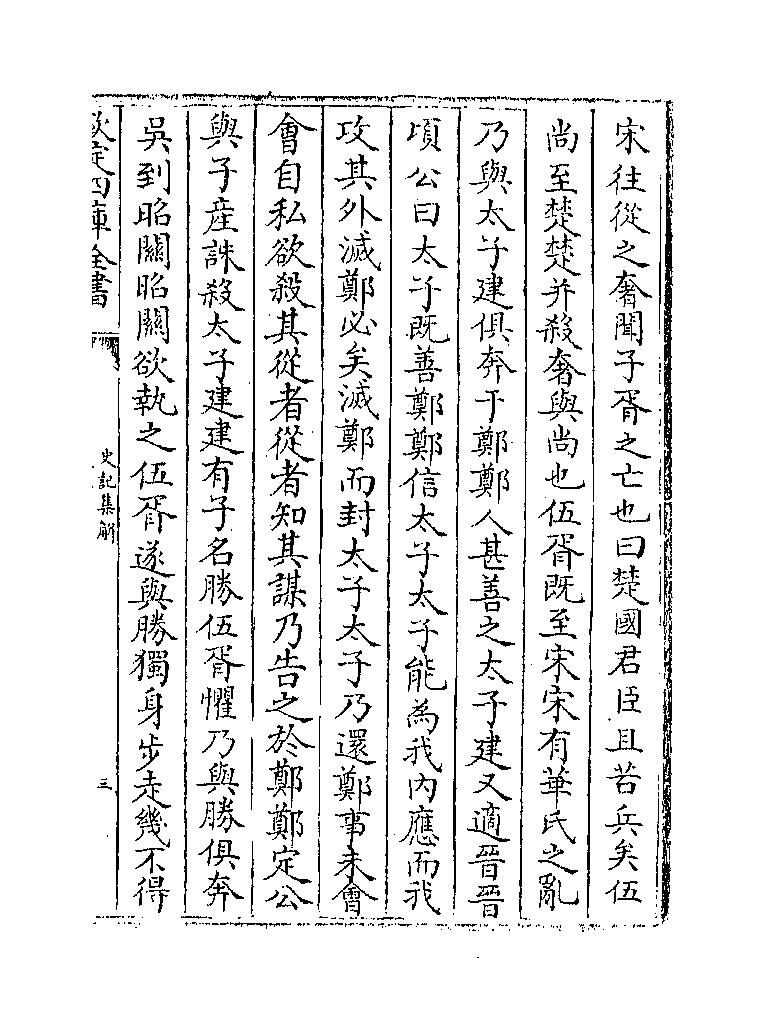 宋往從之奢聞子胥之亡也曰楚國君臣且苦兵矣伍
尚至楚楚并殺奢與尚也伍胥既至宋宋有華氏之亂
乃與太子建俱奔于鄭鄭人甚善之太子建又適晉晉
頃公曰太子既善鄭鄭信太子太子能為我内應而我
攻其外滅鄭必矣滅鄭而封太子太子乃還鄭事未會
會自私欲殺其從者從者知其謀乃告之於鄭鄭定公
與子産誅殺太子建建有子名勝伍胥懼乃與勝俱奔
吳到昭關昭關欲執之伍胥遂與勝獨身步走幾不得
欽定四庫全書
史記集解
三